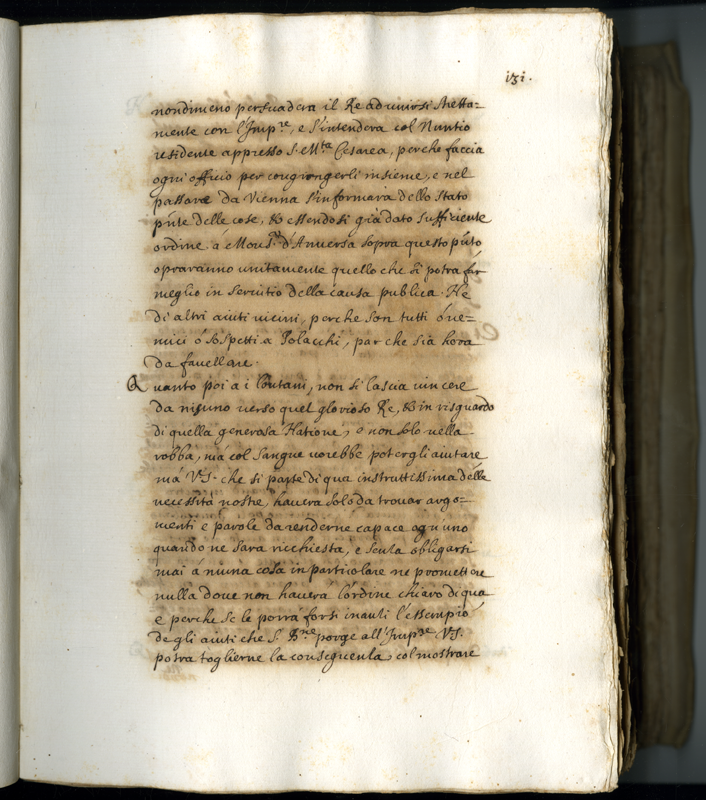 131.
nondimeno persuaderà il Re ad unirsi stretta=
mente con l'Imp.re, e s'intenderà col Nuntio
residente appresso S. M.tà Cesarea, perche faccia
ogni officio per congiongerli insieme, e nel
passare da Vienna s'informarà dello stato
pnte delle cose, et essendosi già dato sufficiente
ordine à Mons.r d'Anversa sopra questo pnto
opraranno unitamente quello che si potrà far
meglio in servitio della causa publica. Ne
di altri aiuti vicini, perche son tutti ò ne=
mici ò sospetti a Polacchi, par che sia hora
da favellare.
Quanto poi a i lontani, non si lascia vincere
da nisuno verso quel glorioso Re, et in risguardo
di quella generosa Natione, e non solo nella
robba, mà col sangue vorebbe potergli aiutare
mà V.S. che si parte di qua instruttissima delle
necessità nostre, haverà solo da trovar argo=
menti e parole da renderne capace ogn'uno
quando ne sarà ricchiesta, e senza obligarsi
mai à niuna cosa in particolare ne promettere
nulla dove non haverà l'ordine chiaro di qua
e perche se le porrà forsi inanti l'essempio
degli aiuti che S. B.ne porge all'Imp.re V.S.
potrà toglierne la conseguenza, col mostrare